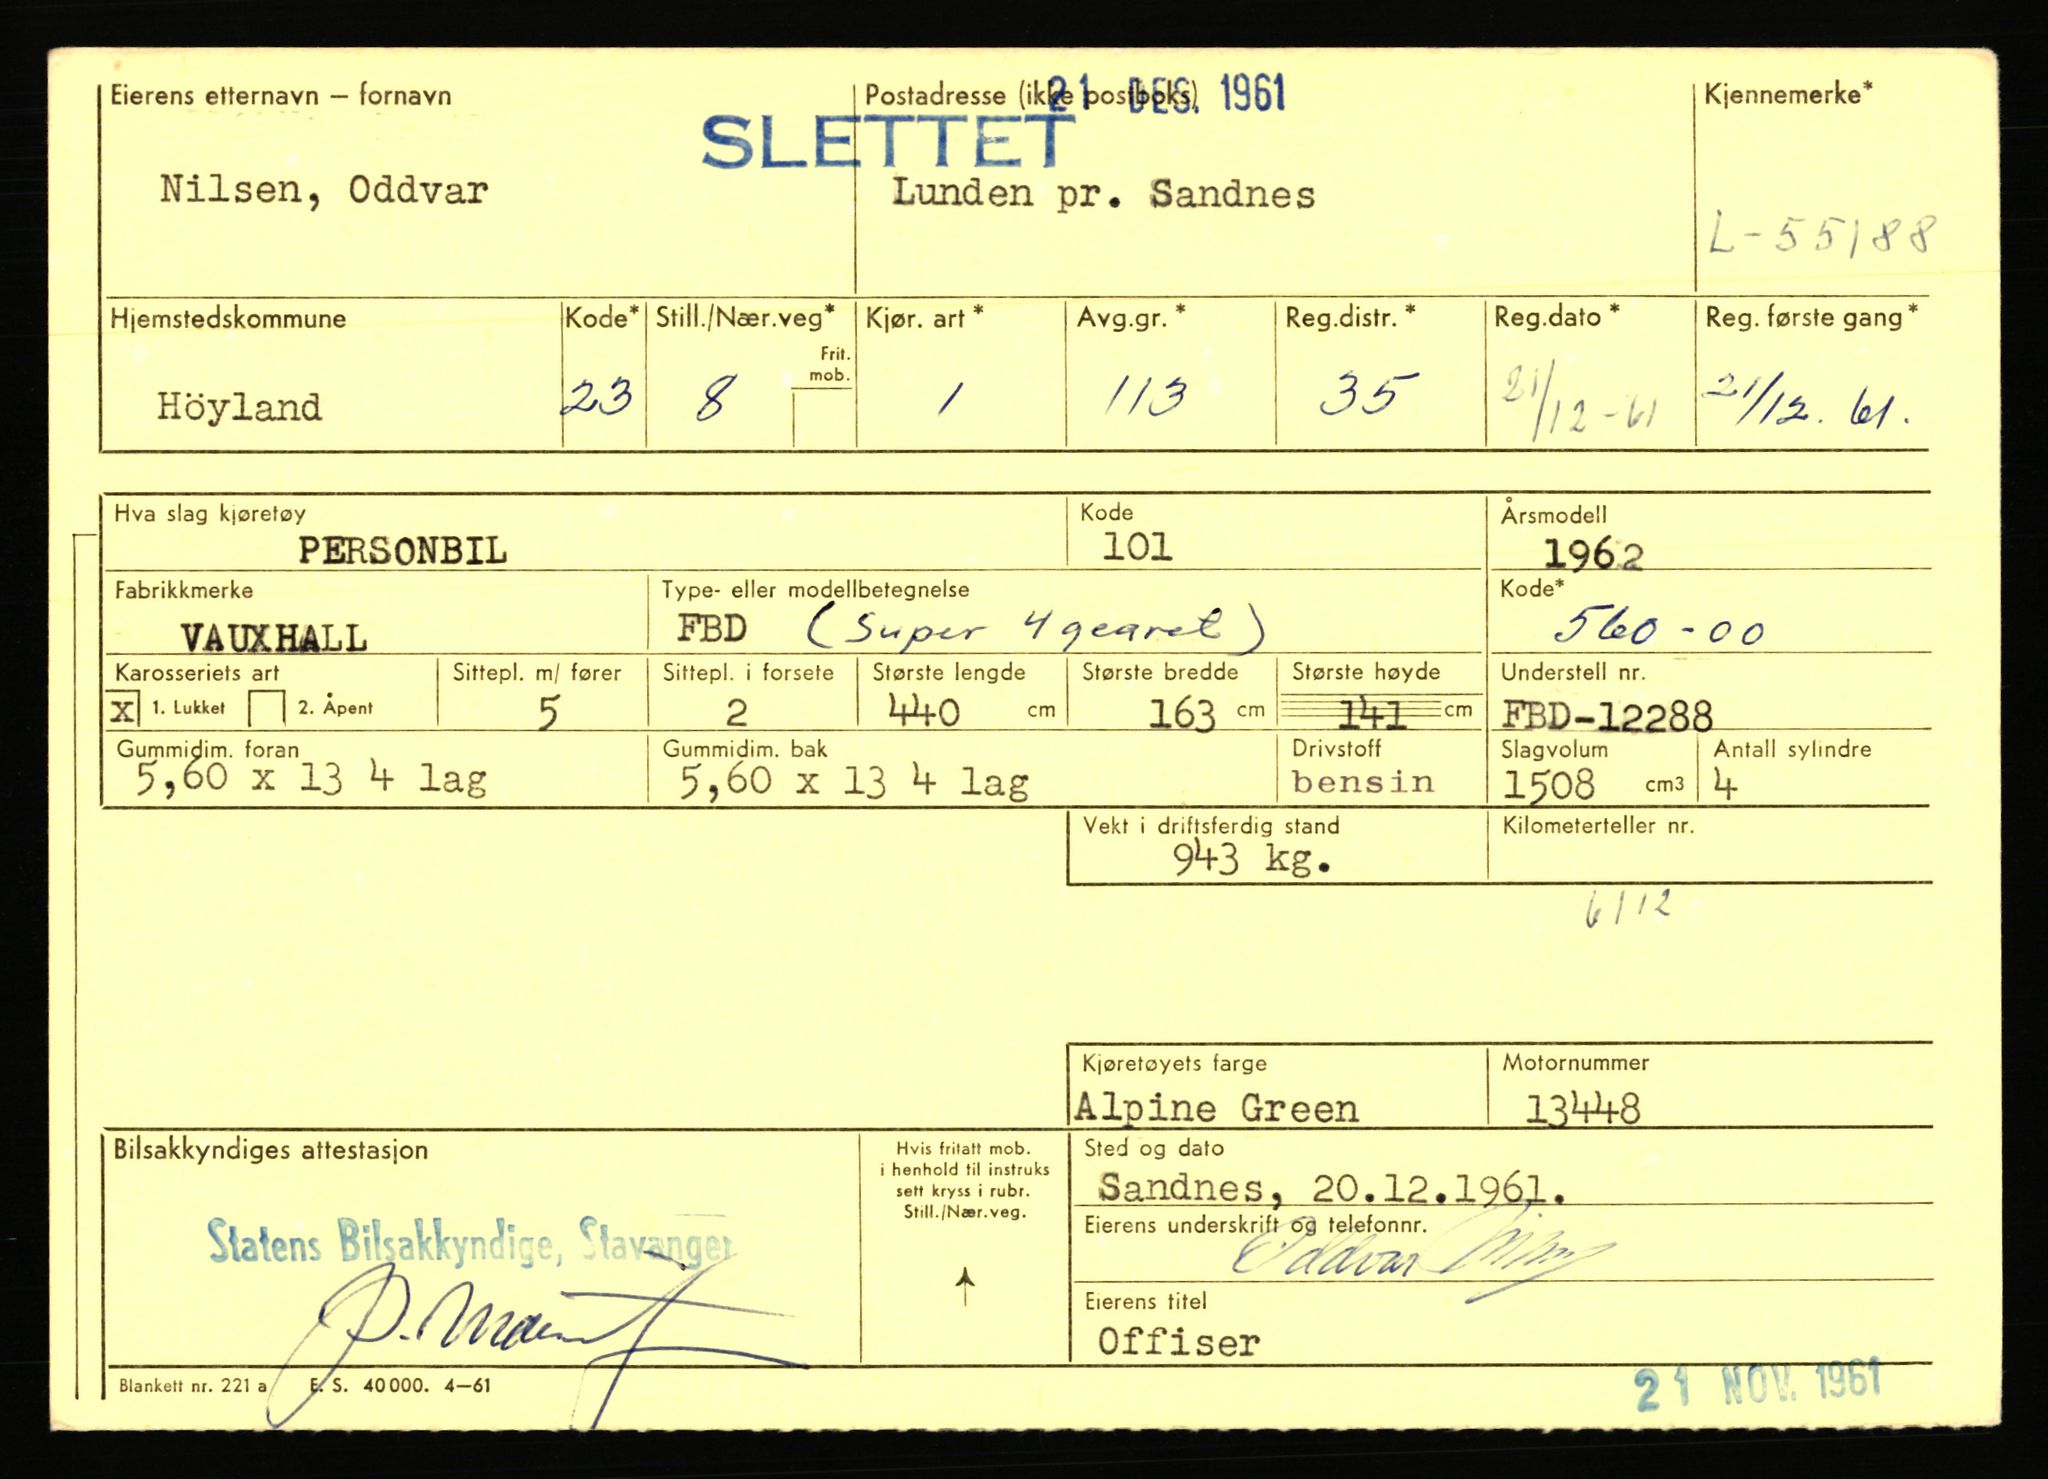 Eierens etternavn – fornavn Postadresse (ikke postboks) 21 DES. 1961 Kjennemerke*
SLETTET
Nilsen, Oddvar Lunden pr. Sandnes
L-55188
Hjemstedskommune Kode* Still./Nær.veg* Kjør. art * Avg.gr. * Reg.distr. * Reg.dato * Reg. første gang *
Frit.
mob.
Höyland 23 8 1 113 35 21/12-61 21/12. 61.
Hva slag kjøretøy Kode Årsmodell
PERSONBIL 101 1962
Fabrikkmerke Type- eller modellbetegnelse Kode*
VAUXHALL FBD (Super 4gearet) 560-00
Karosseriets art Sittepl. m/ fører Sittepl. i forsete Største lengde Største bredde Største høyde Understell nr.
X 1. Lukket 2. Åpent 5 2 440 cm 163 cm 141 cm FBD-12288
Gummidim. foran Gummidim. bak Drivstoff Slagvolum Antall sylindre
5,60 x 13 4 lag 5,60 x 13 4 lag bensin 1508 cm3 4
Vekt i driftsferdig stand Kilometerteller nr.
943 kg.
6/12
Kjøretøyets farge Motornummer
Alpine Green 13448
Bilsakkyndiges attestasjon Hvis fritatt mob.
i henhold til instruks
sett kryss i rubr.
Still./Nær.veg.
Sted og dato
Sandnes, 20.12.1961.
Statens Bilsakkyndige, Stavanger
Eierens underskrift og telefonnr.
Oddvar Nilsen
Eierens titel
Offiser
Blankett nr. 221 a E. S. 40000. 4–61
21 NOV. 1961